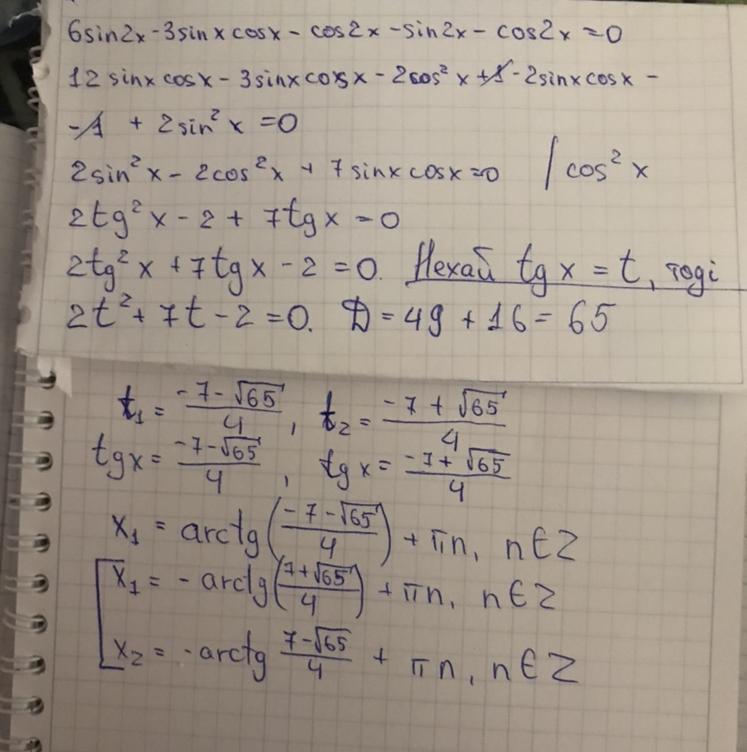 6sin2x - 3sinx cosx - cos2x - sin2x - cos2x = 0
12 sinx cosx - 3sinx cosx - 2cos²x + 1 - 2sinx cosx -
- 1 + 2sin²x = 0
2sin²x - 2cos²x + 7sinx cosx = 0 / cos²x
2tg²x - 2 + 7tgx = 0
2tg²x + 7tgx - 2 = 0. Нехай tgx = t, тоді
2t² + 7t - 2 = 0. D = 49 + 16 = 65
t₁ = (-7-√65)/4, t₂ = (-7+√65)/4
tgx = (-7-√65)/4, tgx = (-7+√65)/4
x₁ = arctg((-7-√65)/4) + πn, n∈Z
[x₁ = -arctg((7+√65)/4) + πn, n∈Z
x₂ = -arctg (7-√65)/4 + πn, n∈Z